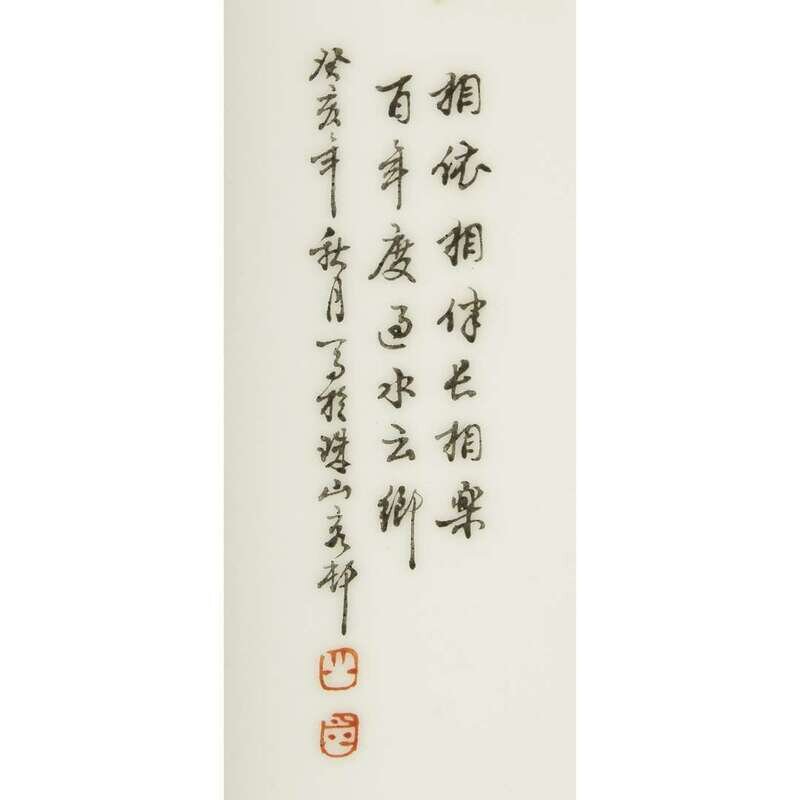 相依相伴長相樂
百年度過水云鄉
癸亥年秋月写於珠山客邨